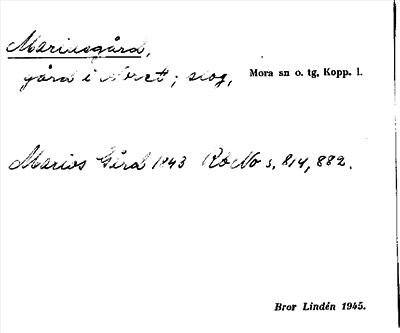 Mariusgård,
gård i Noret; slog, Mora sn o. tg, Kopp. l.
Marios Gård 1843 Rb No s. 814, 882.
Bror Lindén 1945.